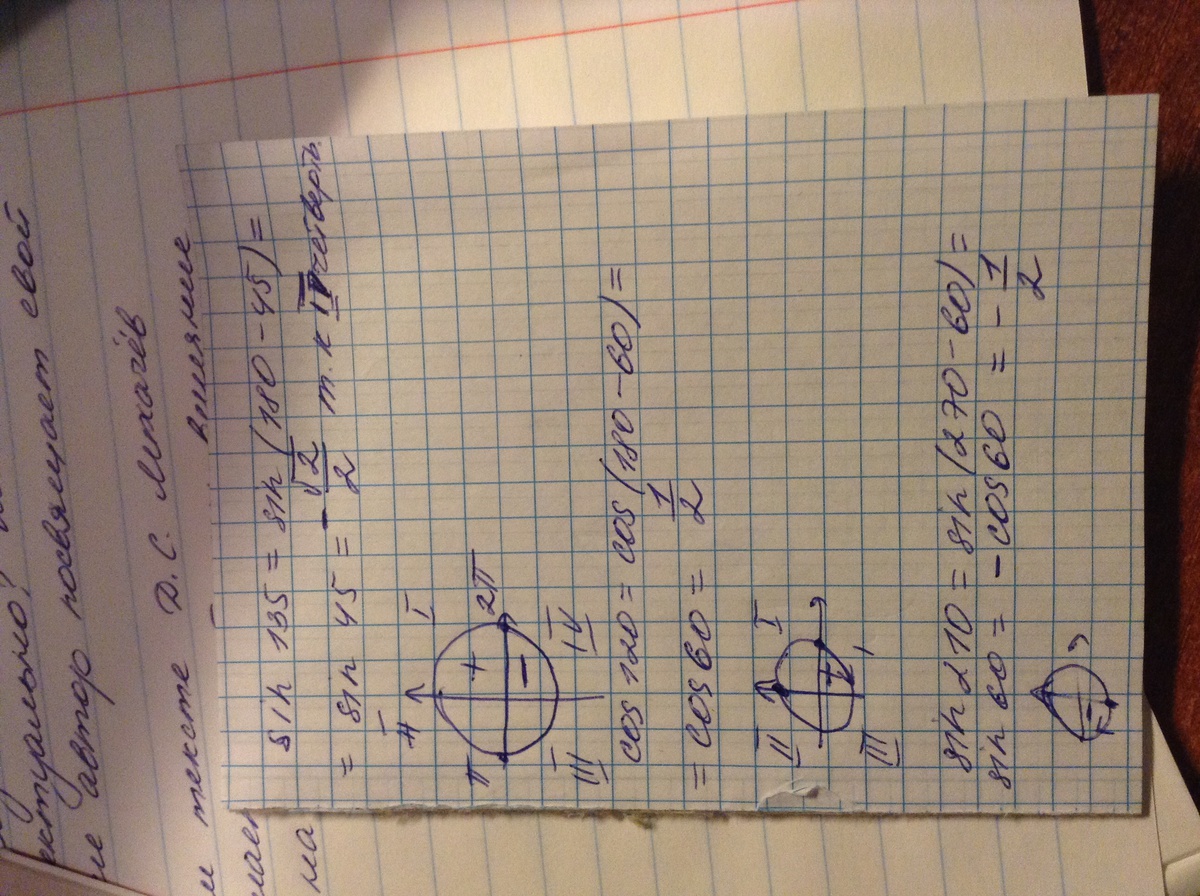 автор посвящает свой
тексте Д. С. Лихачёв
внимание
ма
sin 135 = sin (180 - 45) =
= sin 45 = - √2/2 т. к II четверть
II I
π + 2π
III - IV
cos 120 = cos (180 - 60) =
= cos 60 = 1/2
II I
III
sin 210 = sin (270 - 60) =
sin 60 = - cos 60 = - 1/2